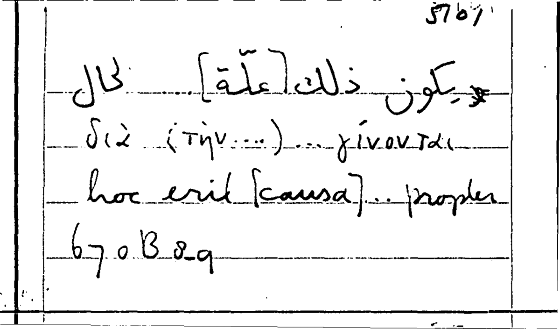 5761
يكون ذلك [علّة] .... لحال
διὰ (τὴν ...) ... γίνονται
hoc erit [causa] .. propter
670B 8-9